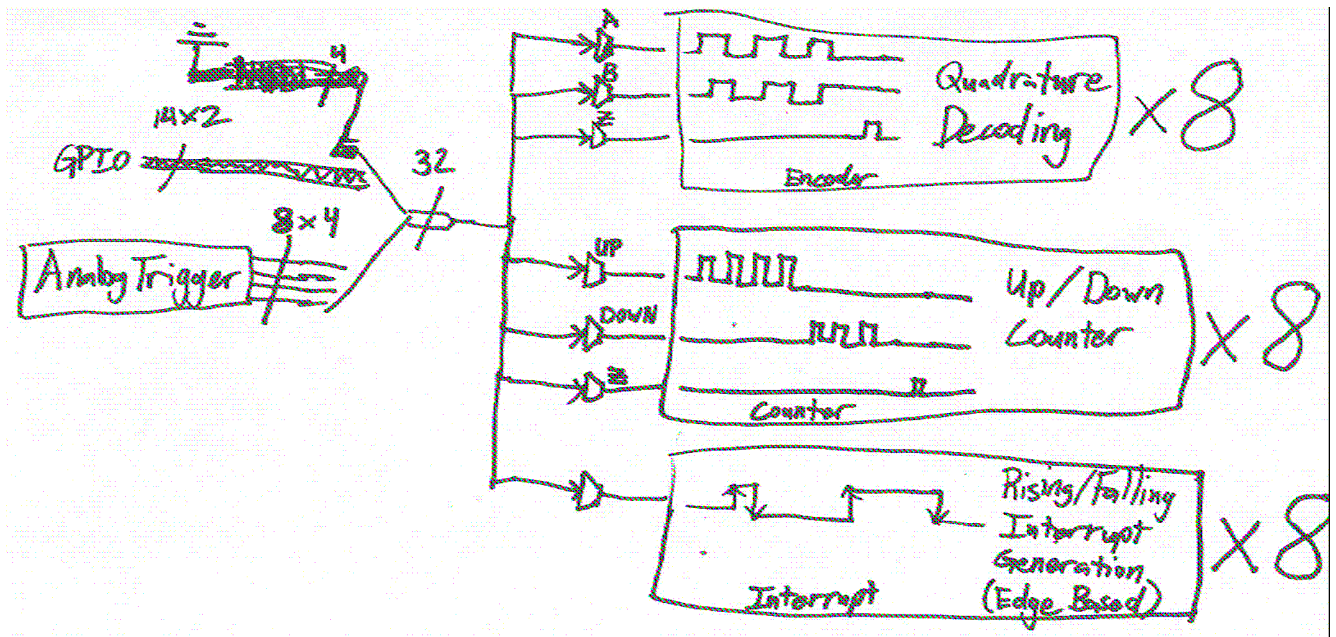 4
14x2
GPIO
32
8x4
Analog Trigger
A
B
Z
Quadrature
Decoding
Encoder
x8
UP
DOWN
Up/Down
Counter
Counter
x8
Rising/Falling
Interrupt
Generation
(Edge Based)
Interrupt
x8